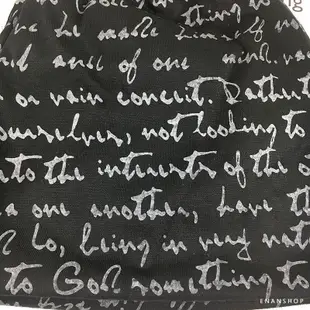 ng
in something to
be made him
and of one mind.
or vain conceit. Rather
ourselves, not looking to
to the interests of the
one another, have th
being in very nat
to God something to
ENANSHOP